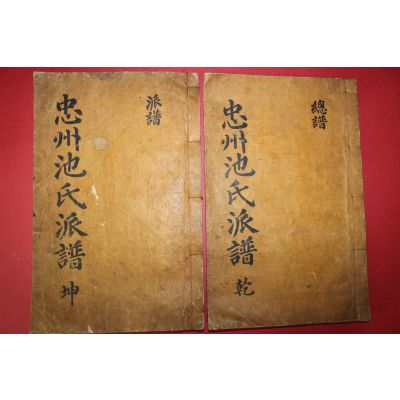 忠州池氏派譜 乾
總譜
忠州池氏派譜 坤
派譜